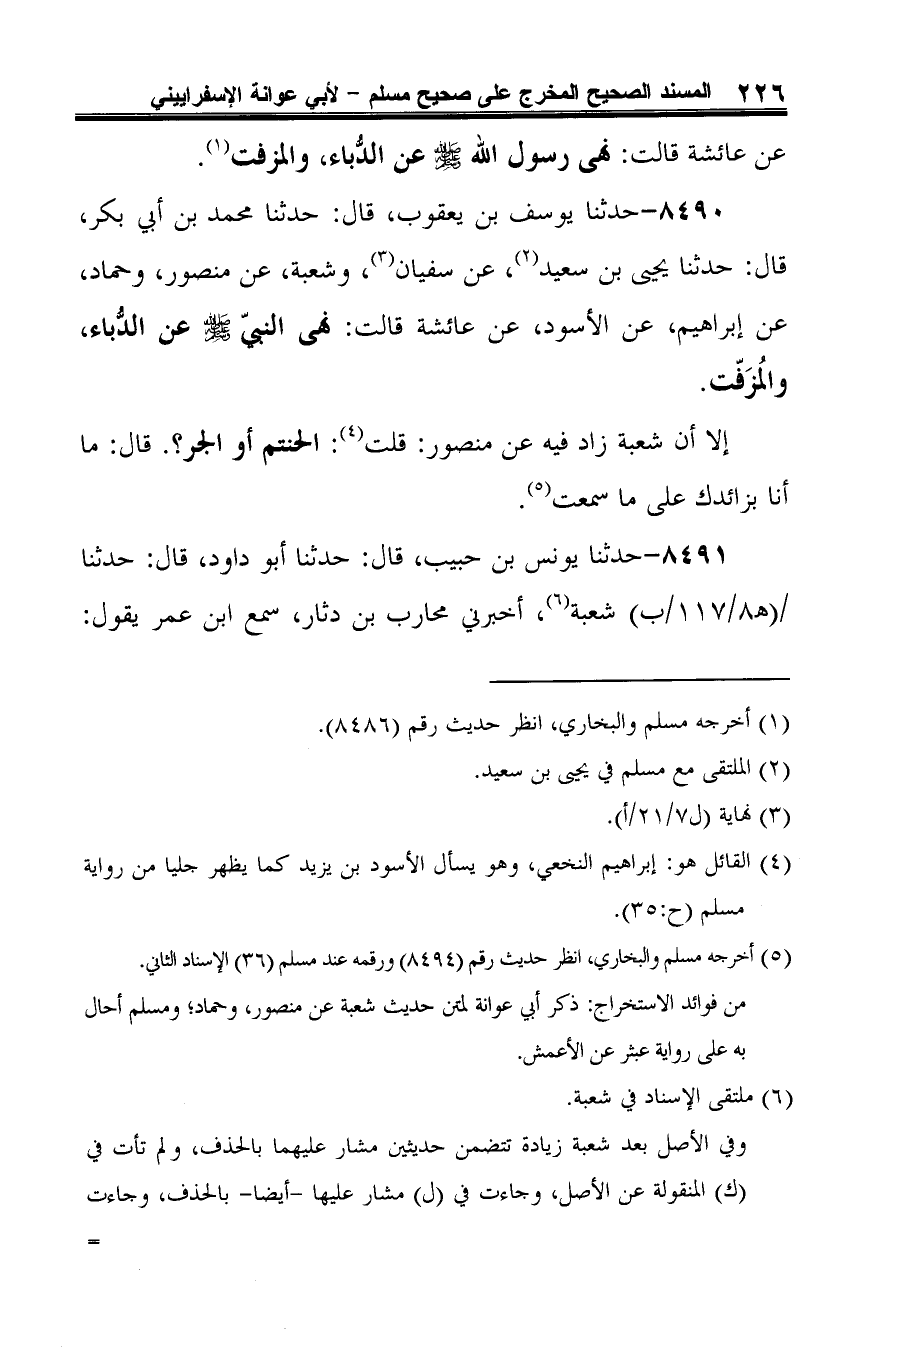 ٢٢٦ المسند الصحيح المخرج على صحيح مسلم - لأبي عوانة الإسفراييني
عن عائشة قالت: نهى رسول الله ﷺ عن الدُّباء، والمزفت(١).
٨٤٩٠-حدثنا يوسف بن يعقوب، قال: حدثنا محمد بن أبي بكر،
قال: حدثنا يحيى بن سعيد(٢)، عن سفيان(٣)، وشعبة، عن منصور، وحماد،
عن إبراهيم، عن الأسود، عن عائشة قالت: نهى النبيّ ﷺ عن الدُّباء،
والمُزَفّت.
إلا أن شعبة زاد فيه عن منصور: قلت(٤): الحنتم أو الجر؟. قال: ما
أنا بزائدك على ما سمعت(٥).
٨٤٩١-حدثنا يونس بن حبيب، قال: حدثنا أبو داود، قال: حدثنا
/(هـ٨/١١٧/ب) شعبة(٦)، أخبرني محارب بن دثار، سمع ابن عمر يقول:
(١) أخرجه مسلم والبخاري، انظر حديث رقم (٨٤٨٦).
(٢) الملتقى مع مسلم في يحيى بن سعيد.
(٣) نهاية (ل٢١/٧/أ).
(٤) القائل هو: إبراهيم النخعي، وهو يسأل الأسود بن يزيد كما يظهر جليا من رواية
مسلم (ح:٣٥).
(٥) أخرجه مسلم والبخاري، انظر حديث رقم (٨٤٩٤) ورقمه عند مسلم (٣٦) الإسناد الثاني.
من فوائد الاستخراج: ذكر أبي عوانة لمتن حديث شعبة عن منصور، وحماد؛ ومسلم أحال
به على رواية عبثر عن الأعمش.
(٦) ملتقى الإسناد في شعبة.
وفي الأصل بعد شعبة زيادة تتضمن حديثين مشار عليهما بالحذف، ولم تأت في
(ك) المنقولة عن الأصل، وجاءت في (ل) مشار عليها -أيضا- بالحذف، وجاءت
=